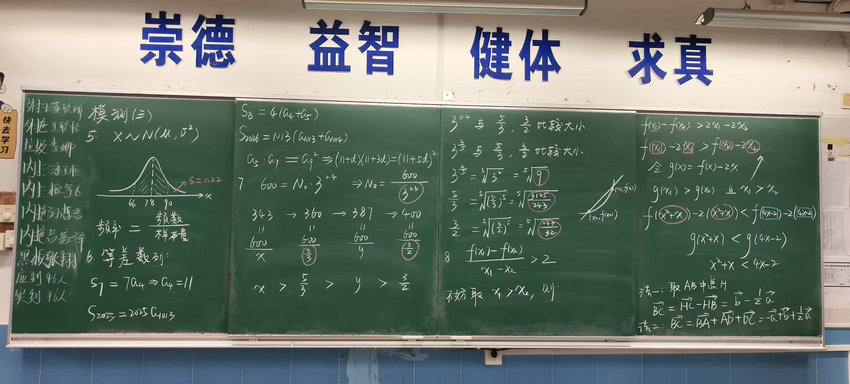 崇德 益智 健体 求真
快去学习
黑板张翔
应到 46人
实到 46人
模测(三)
5. X~N(μ, σ²)
S=0.22
66 78 90 x
频率 = 频数/样本量
6. 等差数列:
S₇ = 7a₄ ⇒ a₄ = 11
S₂₀₂₅ = 2025 a₁₀₁₃
S₈ = 4(a₄+a₅)
S₂₀₂₆ = 1013(a₁₀₁₃+a₁₀₁₄)
a₅·a₇ = a₉² ⇒ (11+d)(11+3d) = (11+5d)²
7 600 = N₀·3^2.4 ⇒ N₀ = 600/3^2.4
343 → 360 → 387 → 400
600/x 600/(5/3) 600/y 600/(3/2)
x > 5/3 > y > 3/2
3^0.4 与 5/3, 3/2 比较大小
3^(2/5) 与 5/3, 3/2 比较大小
3^(2/5) = ⁵√3² = ⁵√9
5/3 = ⁵√(5/3)⁵ = ⁵√(3125/243)
3/2 = ⁵√(3/2)⁵ = ⁵√(243/32)
8 (f(x₁)-f(x₂))/(x₁-x₂) > 2
不妨取 x₁ > x₂, 则
f(x₁)-f(x₂) > 2x₁-2x₂
f(x₁)-2x₁ > f(x₂)-2x₂
令 g(x) = f(x)-2x
g(x₁) > g(x₂) 且 x₁ > x₂
f(x²+x)-2(x²+x) < f(4x-2)-2(4x-2)
g(x²+x) < g(4x-2)
x²+x < 4x-2
法一: 取AB中点H
BC = HC - HB = b - ½a
法二: BC = BA + AD + DC = -a + b + ½a